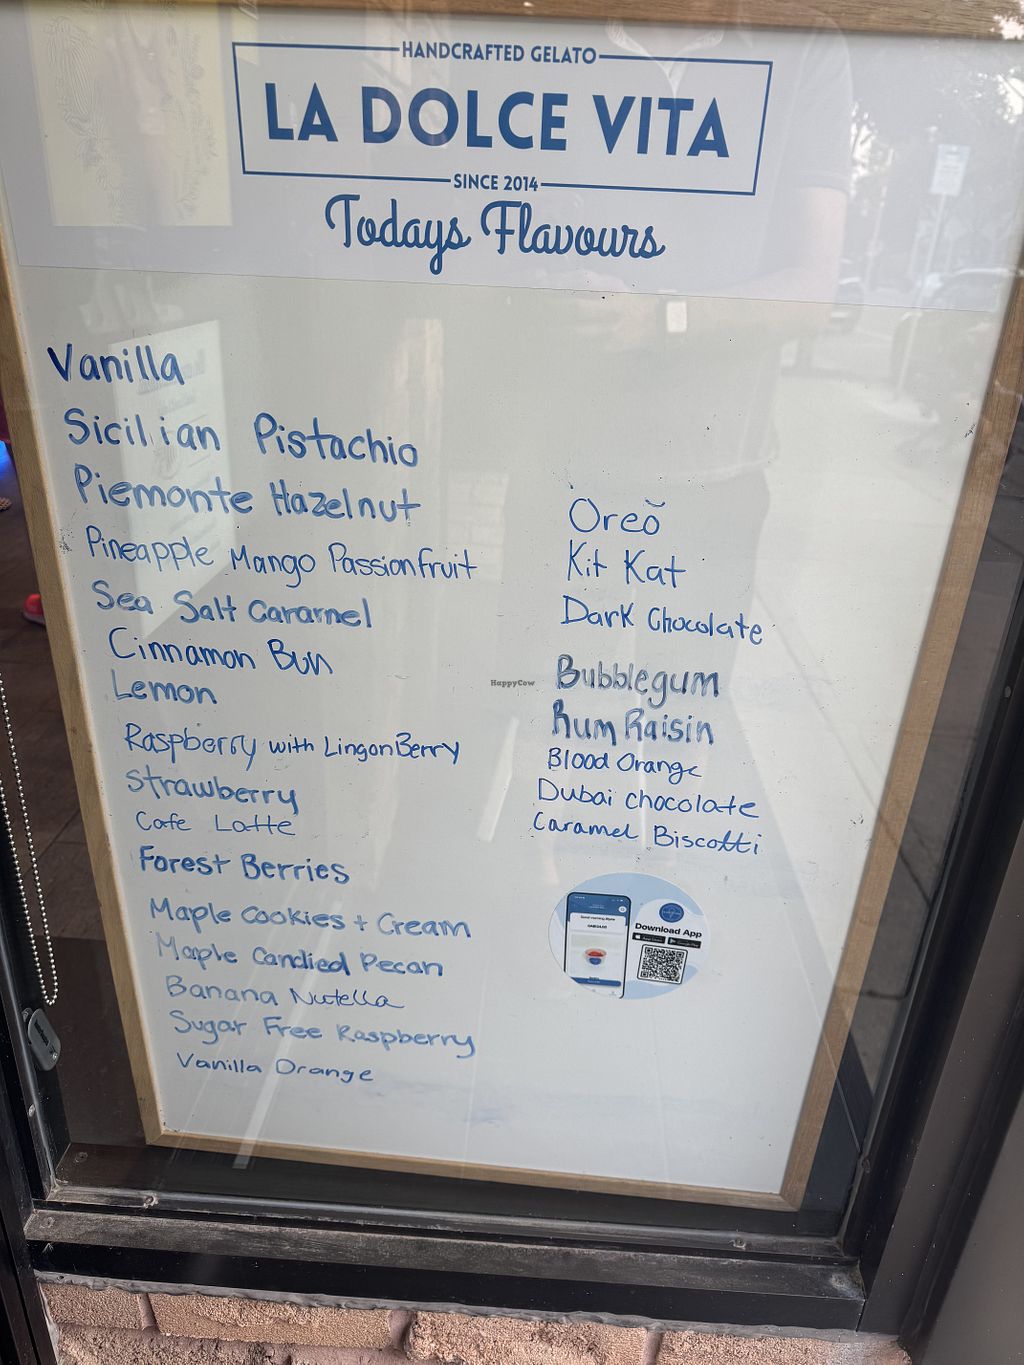 HANDCRAFTED GELATO
LA DOLCE VITA
SINCE 2014
Todays Flavours
Vanilla
Sicilian Pistachio
Piemonte Hazelnut
Pineapple Mango Passionfruit
Sea Salt Caramel
Cinnamon Bun
Lemon
Raspberry with LingonBerry
Strawberry
Cafe Latte
Forest Berries
Maple Cookies + Cream
Maple Candied Pecan
Banana Nutella
Sugar Free Raspberry
Vanilla Orange
Oreo
Kit Kat
Dark Chocolate
HappyCow
Bubblegum
Rum Raisin
Blood Orange
Dubai chocolate
Caramel Biscotti
Download App